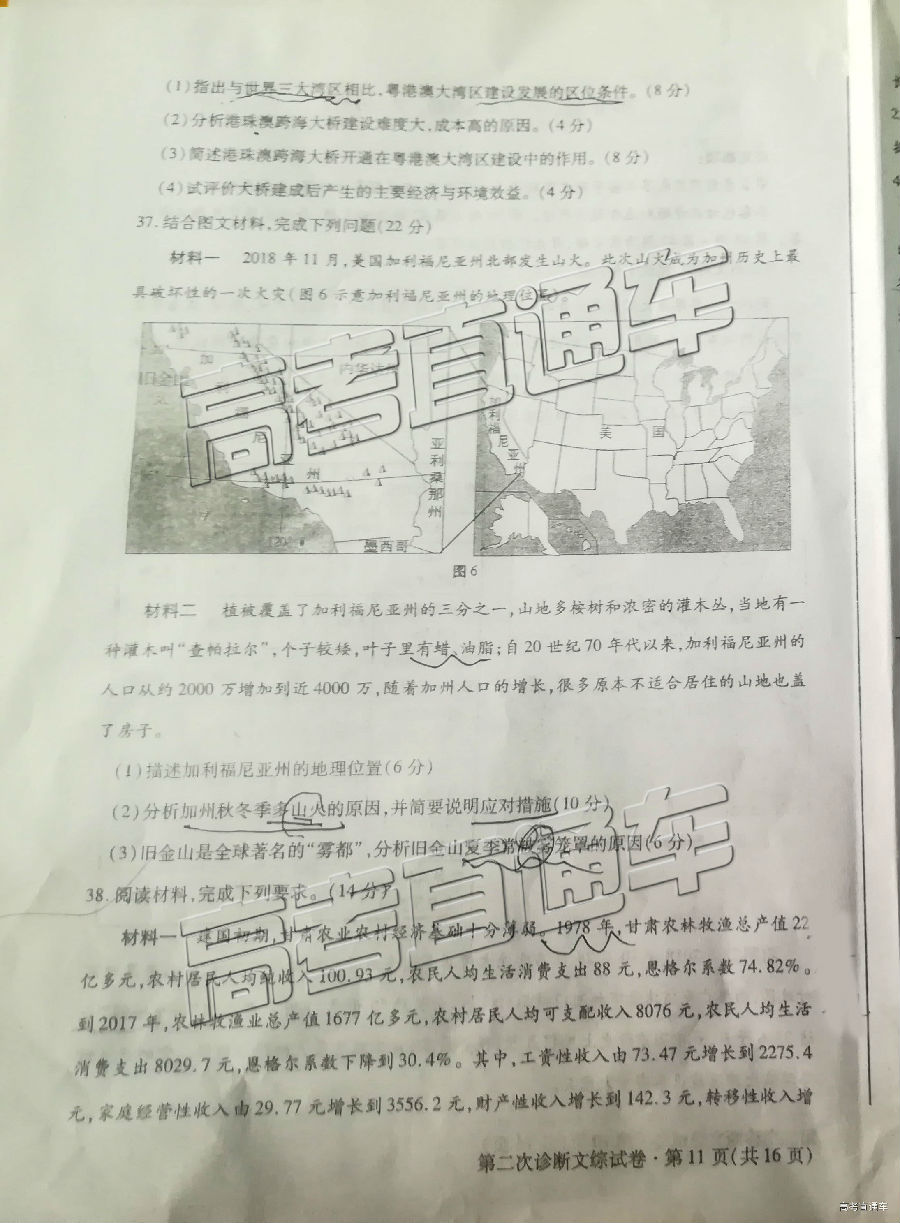 (1)指出与世界三大湾区相比,粤港澳大湾区建设发展的区位条件。(8分)
(2)分析港珠澳跨海大桥建设难度大,成本高的原因。(4分)
(3)简述港珠澳跨海大桥开通在粤港澳大湾区建设中的作用。(8分)
(4)试评价大桥建成后产生的主要经济与环境效益。(4分)
37.结合图文材料,完成下列问题(22分)
材料一 2018年11月,美国加利福尼亚州北部发生山火。此次山火成为加州历史上最
具破坏性的一次大灾(图6示意加利福尼亚州的地理位置)。
加
利
福
尼
亚
州
旧金山
内华达
亚利桑那州
120°
墨西哥
加利福尼亚州
美国
高考直通车
图6
材料二 植被覆盖了加利福尼亚州的三分之一,山地多桉树和浓密的灌木丛,当地有一
种灌木叫“查帕拉尔”,个子较矮,叶子里有蜡、油脂;自20世纪70年代以来,加利福尼亚州的
人口从约2000万增加到近4000万,随着加州人口的增长,很多原本不适合居住的山地也盖
了房子。
(1)描述加利福尼亚州的地理位置(6分)
(2)分析加州秋冬季多山火的原因,并简要说明应对措施(10分)
(3)旧金山是全球著名的“雾都”,分析旧金山夏季常被雾笼罩的原因(6分)
38.阅读材料,完成下列要求。(14分)
高考直通车
材料一 建国初期,甘肃农业农村经济基础十分薄弱。1978年,甘肃农林牧渔总产值22
亿多元,农村居民人均纯收入100.93元,农民人均生活消费支出88元,恩格尔系数74.82%。
到2017年,农林牧渔业总产值1677亿多元,农村居民人均可支配收入8076元,农民人均生活
消费支出8029.7元,恩格尔系数下降到30.4%。其中,工资性收入由73.47元增长到2275.4
元,家庭经营性收入由29.77元增长到3556.2元,财产性收入增长到142.3元,转移性收入增
第二次诊断文综试卷·第11页(共16页)
高考直通车